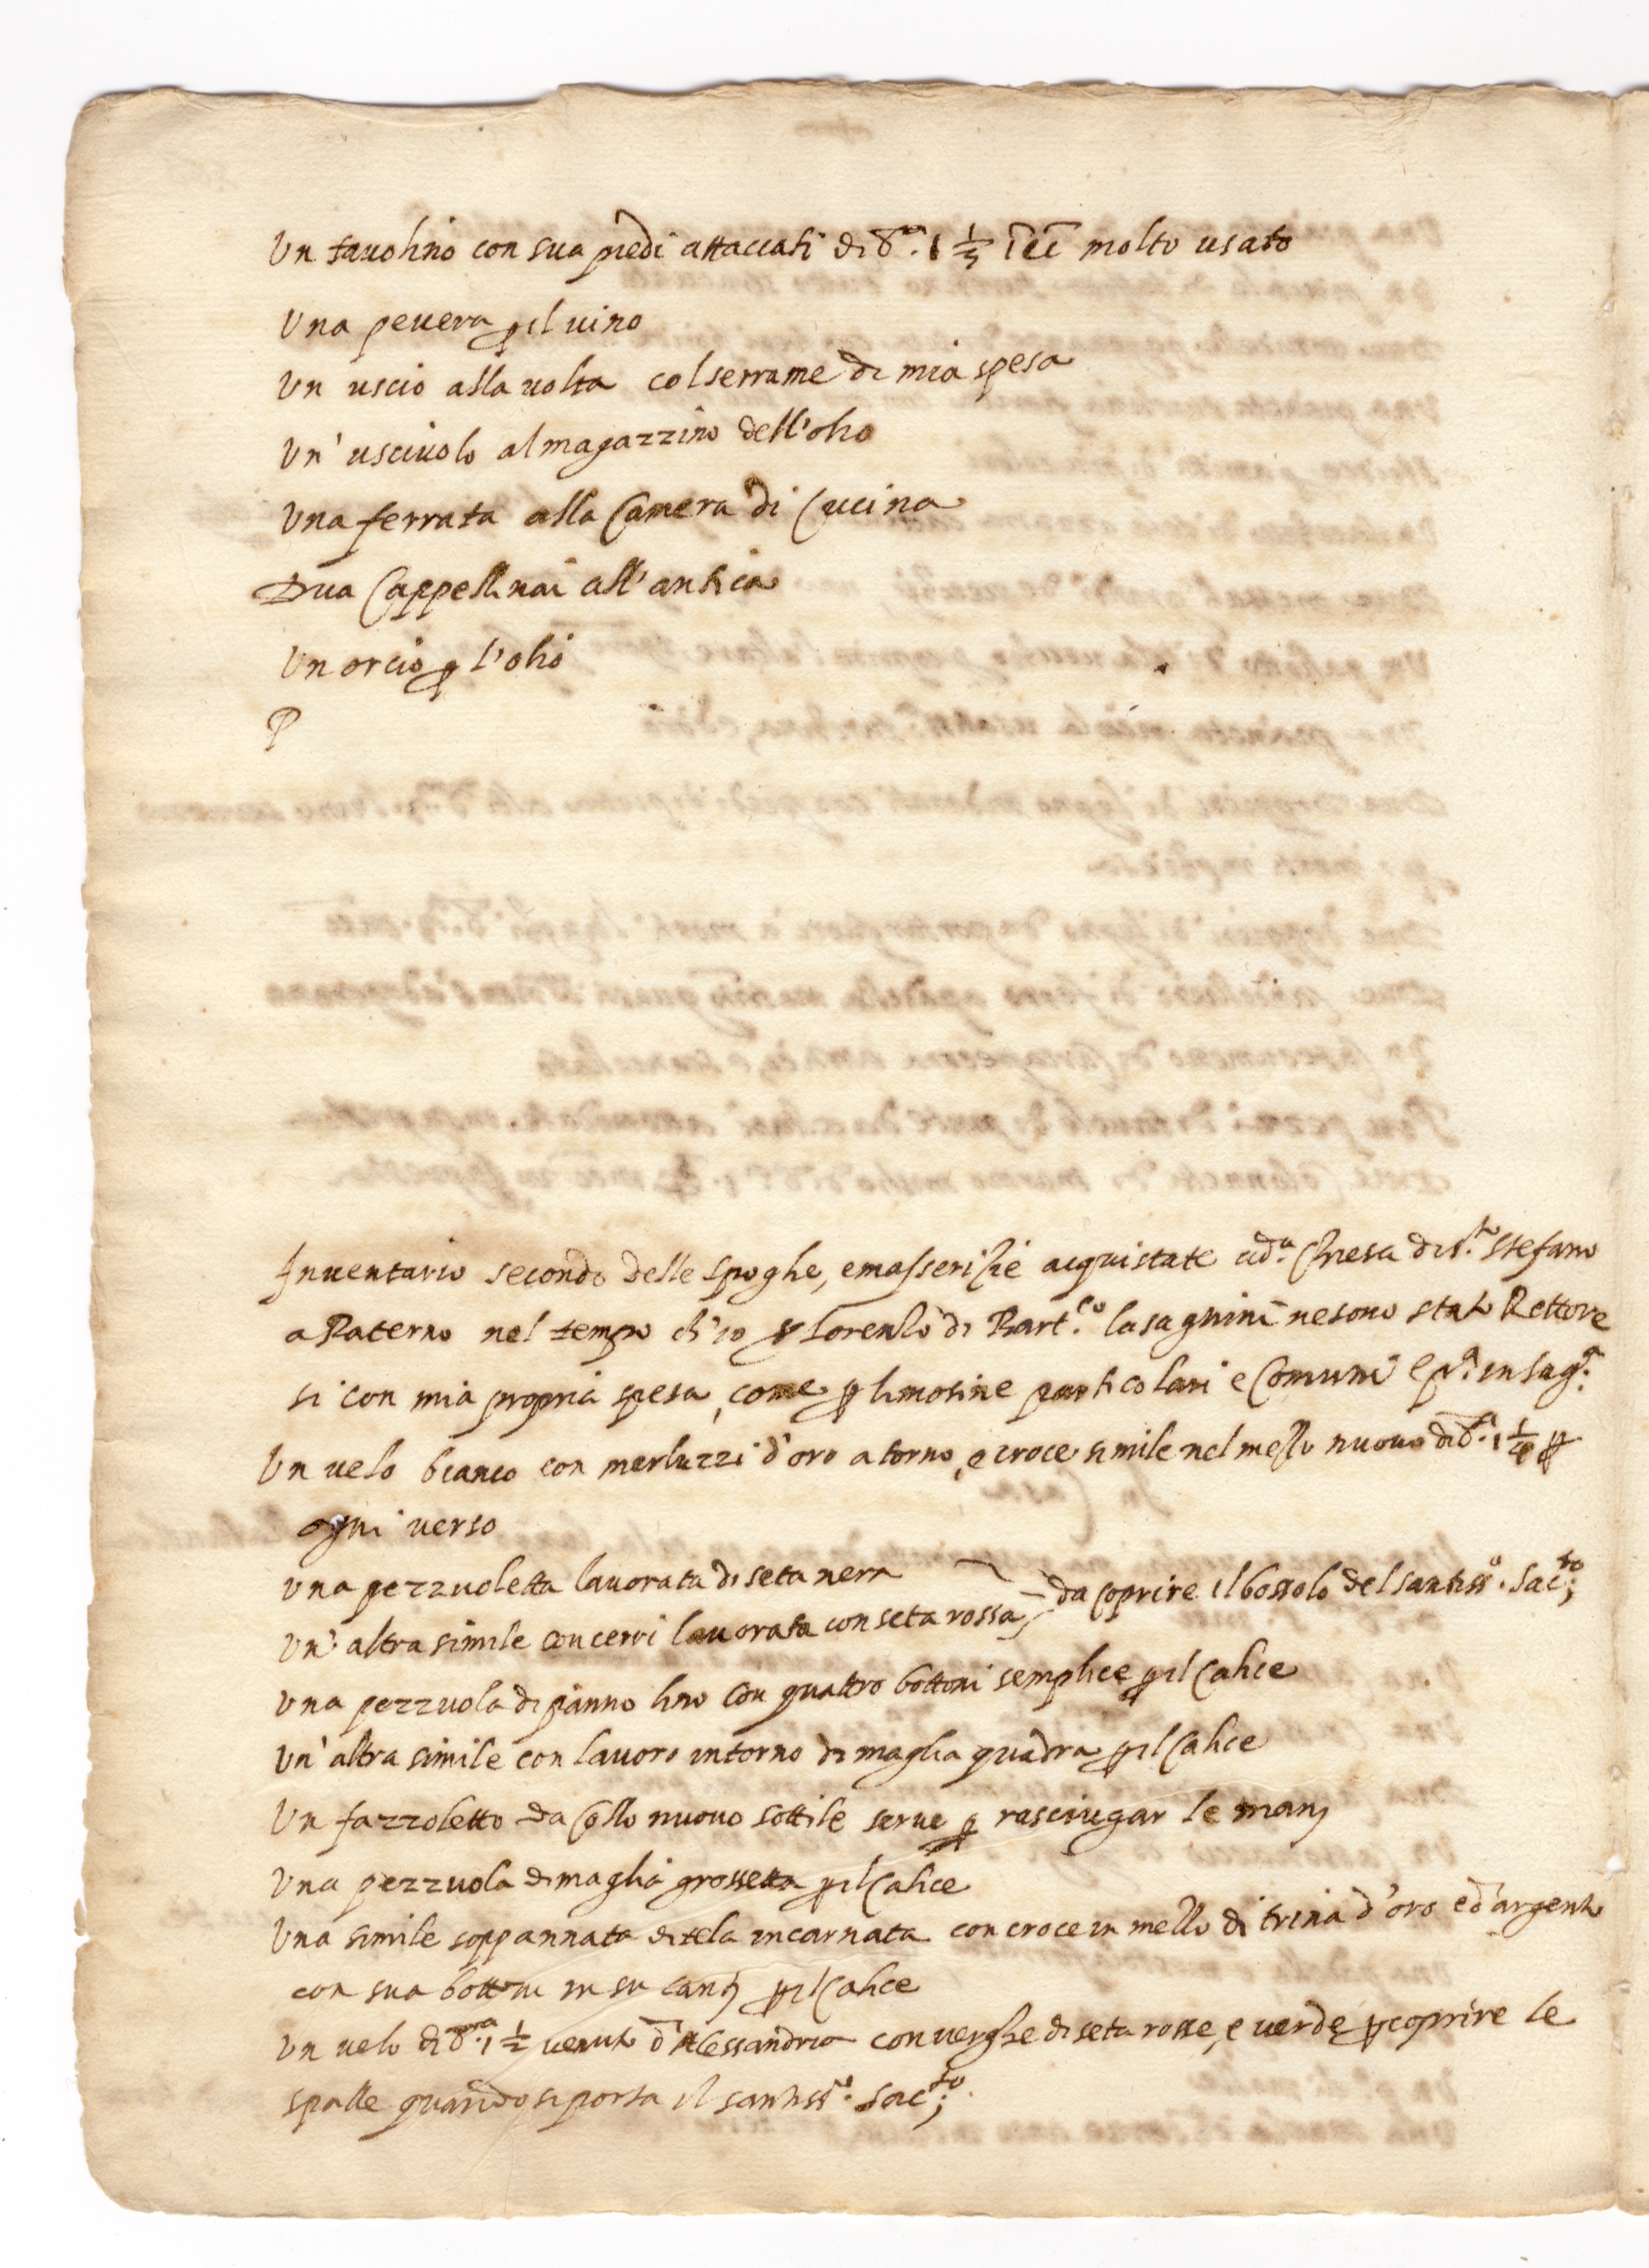 Un tauolino con sua piedi attaccati di b.ª 1 ½ molto usato
Una peuera p il uino
Un uscio alla uolta col serrame di mia spesa
Un' usciuolo al magazzino dell'olio
Una ferrata alla Camera di Cucina
Dua Cappellinai all'antica
Un orcio p l'olio
P
Inuentario secondo delle spoglie, e masserizie acquistate a d.ª Chiesa di S.to Stefano
a Paterno nel tempo ch'io Lorenzo di Bart.eo lasagnini ne sono stato Rettore
si con mia propria spesa, come p limosine particolari e Comuni e p.ª in sag.ª
Un uelo bianco con merluzzi d'oro atorno, e croce simile nel mezzo nuouo di b.ª 1 ¼ p
ogni uerso
Una pezzuoletta lauorata di seta nera
Un' altra simile con cerri lauorata con seta rossa da coprire il bossolo del santiss.o Sac.to;
Una pezzuola di panno lino con quattro bottoni semplice p il Calice
Un' altra simile con lauoro intorno di maglia quadra p il Calice
Un fazzoletto da Collo nuouo sottile serue p rasciugar le manj
Una pezzuola di maglia grossetta p il Calice
Una simile soppannata di tela incarnata con croce in mezzo di trina d'oro e d'argento
con sua bottoni in su cantj p il Calice
Un uelo di b.ª 1 ½ uenuto d'Alessandria con uerghe di seta rosse, e uerde p coprire le
spalle quando si porta il santiss.o Sac.to;